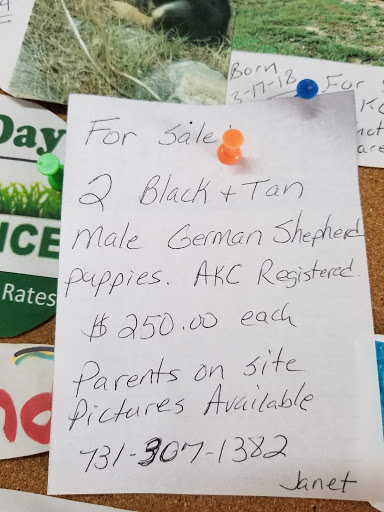 Born
3-17-18
For
Day
ICE
Rates
For Sale!
2 Black + Tan
male German Shepherd
puppies. AKC Registered.
$ 250.00 each
Parents on site
Pictures Available
731-307-1382
Janet